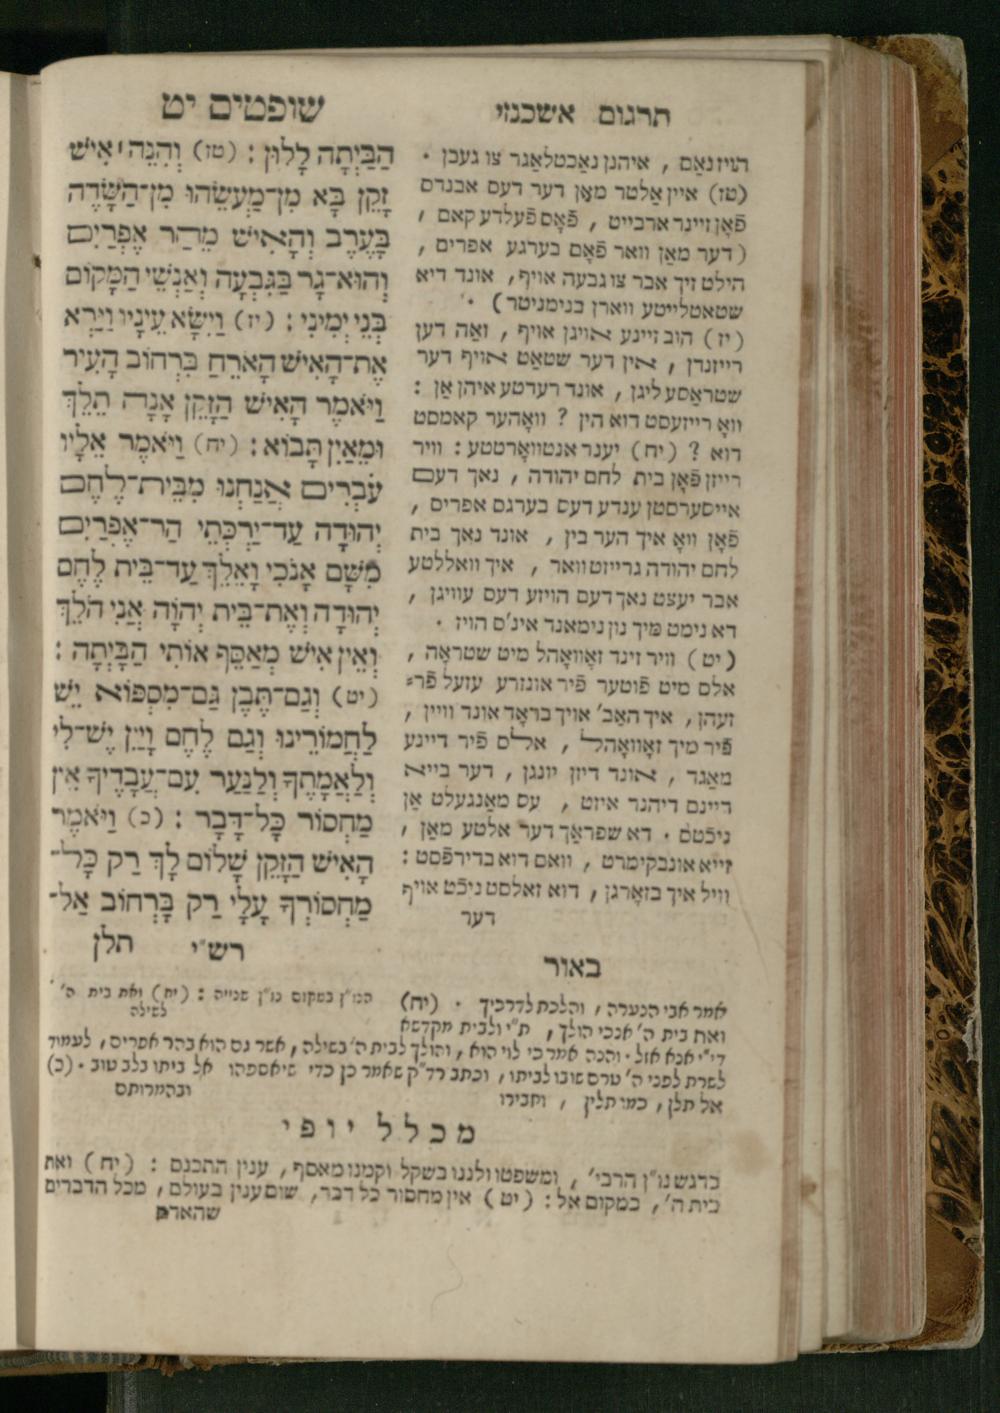 תרגום אשכנזי
הויז נאַם , איהנן נאַכטלאַגר צו געבן .
(טז) איין אַלטר מאַן דער דעס אבנדס
פֿאָן זיינר ארבייט , פֿאָם פֿעלדע קאם ,
( דער מאַן וואר פֿאָם בערגע אפרים ,
הילט זיך אבר צו גבעה אויף, אונד דיא
שטאטלייטע ווארן בנימניטר) .
(יז) הוב זיינע אויגן אויף , זאה דען
רייזנדן , אין דער שטאַט אויף דער
שטראַסע ליגן , אונד רעדטע איהן אָן :
וואָ רייזעסט דוא הין ? וואָהער קאמסט
דוא ? (יח) יענר אנטוואָרטטע : וויר
רייזן פֿאָן בית לחם יהודה , נאך דעם
אייסערסטן ענדע דעס בערגס אפרים ,
פֿאָן וואָ איך הער בין , אונד נאך בית
לחם יהודה גרייזט וואר , איך וואללטע
אבר יעצט נאך דעם הויזע דעס עוויגן ,
דא נימט מיך נון נימאנד אינ'ס הויז .
(יט) וויר זינד זאָוואָהל מיט שטראָה ,
אלס מיט פֿוטער פֿיר אונזרע עזעל פֿר=
זעהן , איך האַב' אויך בראָד אונד וויין ,
פֿיר מיך זאָוואָהל , אלס פֿיר דיינע
מאַגד , אונד דיזן יונגן , דער בייא
דיינם דיהנר איזט , עס מאַנגעלט אָן
ניכֿטס . דא שפראַך דער אלטע מאַן ,
זייא אונבקימרט , וואס דוא בדירפֿסט :
וויל איך בזאָרגן , דוא זאלסט ניכֿט אויף
דער
שופטים יט
הַבַּיְתָה לָלוּן : (טז) וְהִנֵּה ׀ אִישׁ
זָקֵן בָּא מִן־מַעֲשֵׂהוּ מִן־הַשָּׂדֶה
בָּעֶרֶב וְהָאִישׁ מֵהַר אֶפְרַיִם
וְהוּא־גָר בַּגִּבְעָה וְאַנְשֵׁי הַמָּקוֹם
בְּנֵי יְמִינִי : (יז) וַיִּשָּׂא עֵינָיו וַיַּרְא
אֶת־הָאִישׁ הָאֹרֵחַ בִּרְחוֹב הָעִיר
וַיֹּאמֶר הָאִישׁ הַזָּקֵן אָנָה תֵלֵךְ
וּמֵאַיִן תָּבוֹא : (יח) וַיֹּאמֶר אֵלָיו
עֹבְרִים אֲנַחְנוּ מִבֵּית־לֶחֶם
יְהוּדָה עַד־יַרְכְּתֵי הַר־אֶפְרַיִם
מִשָּׁם אָנֹכִי וָאֵלֵךְ עַד־בֵּית לֶחֶם
יְהוּדָה וְאֶת־בֵּית יְהֹוָה אֲנִי הֹלֵךְ
וְאֵין אִישׁ מְאַסֵּף אוֹתִי הַבָּיְתָה :
(יט) וְגַם־תֶּבֶן גַּם־מִסְפּוֹא יֵשׁ
לַחֲמוֹרֵינוּ וְגַם לֶחֶם וָיַיִן יֶשׁ־לִי
וְלַאֲמָתֶךָ וְלַנַּעַר עִם־עֲבָדֶיךָ אֵין
מַחְסוֹר כָּל־דָּבָר : (כ) וַיֹּאמֶר
הָאִישׁ הַזָּקֵן שָׁלוֹם לָךְ רַק כָּל־
מַחְסוֹרְךָ עָלָי רַק בָּרְחוֹב אַל־
תלן
רש"י
הנו"ן במקום נו"ן שנייה : (יח) ואת בית ה'
לשילה
באור
אמר אבי הנערה , והלכת לדרכיך . (יח)
ואת בית ה' אנכי הולך , ת"י ולבית מקדשא
די"י אנא אזל . והנה אמר כי לוי הוא , והולך לבית ה' בשילה , אשר גם הוא בהר אפרים , לעמוד
לשרת לפני ה' טרם שובו לביתו , וכתב רד"ק שאמר כן כדי שיאספהו אל ביתו בלב טוב . (כ)
אל תלן , כמו תלין , וחבירו
ובהמרותם
מכלל יופי
בדגש נו"ן הרבי' , ומשפטו ולננו בשקל וקמנו מאסף , ענין התכנס : (יח) ואת
בית ה' , במקום אל : (יט) אין מחסור כל דבר , שום ענין בעולם , מכל הדברים
שהאדם